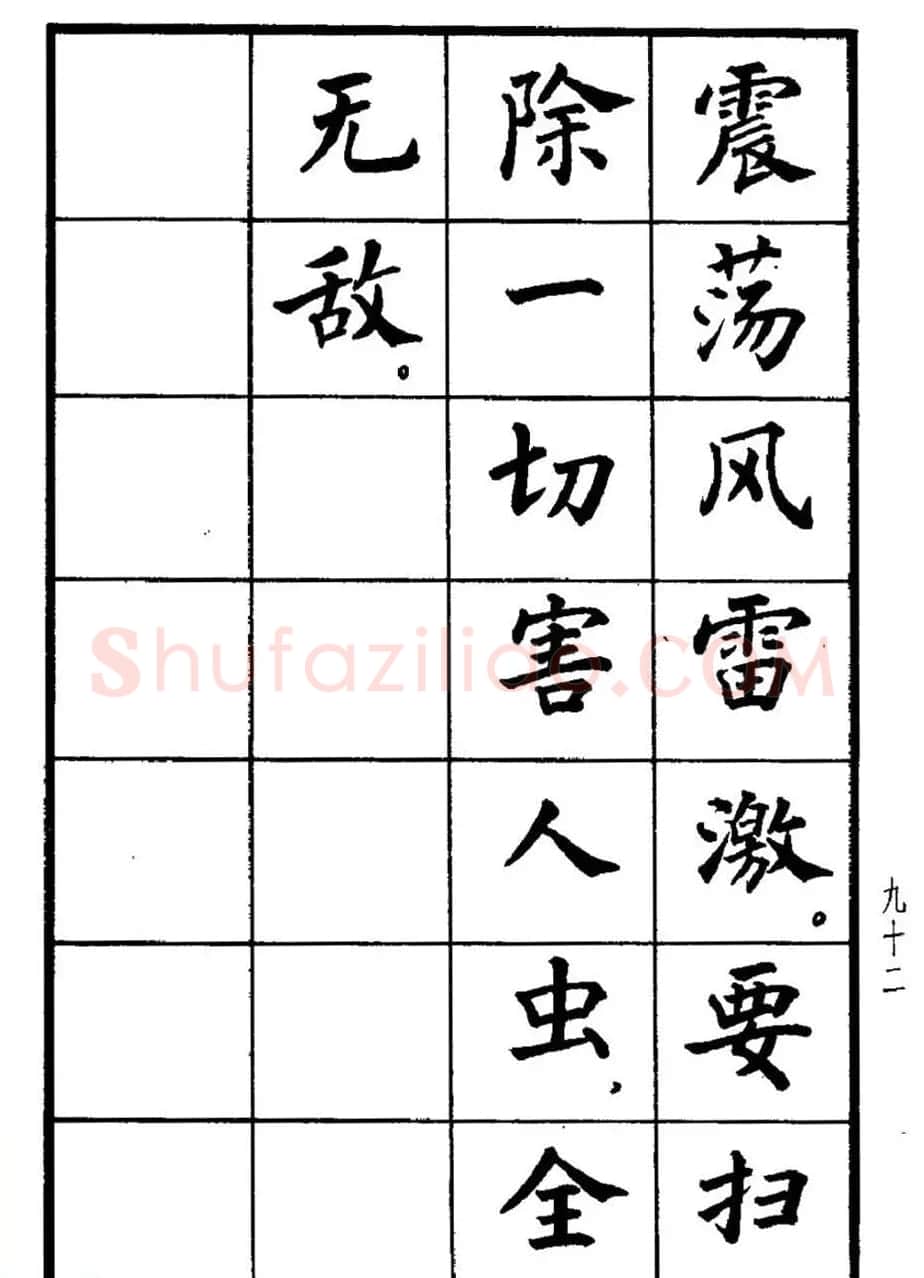 震荡风雷激。要扫
除一切害人虫，全
无敌。
九十二
Shufaziliao.COM